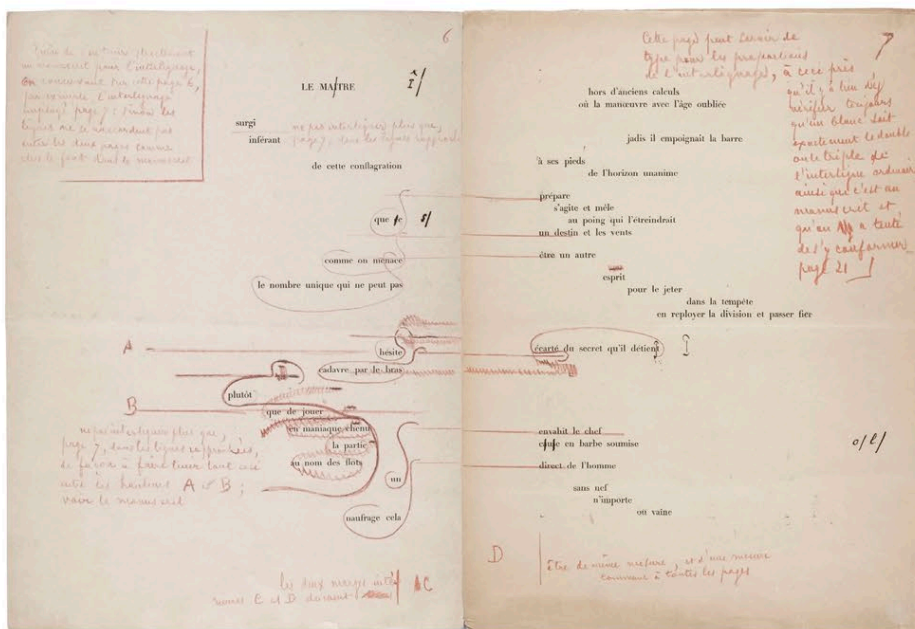 6
LE MAITRE
Î/
surgi
inférant
ne pas interligner plus que,
page 7, dans les lignes rapprochées
de cette conflagration
que se
s/
comme on menace
le nombre unique qui ne peut pas
A
hésite
cadavre par le bras
plutôt
B
que de jouer
en maniaque chenu
la partie
au nom des flots
un
naufrage cela
ne pas interligner plus que,
page 7, dans les lignes rapprochées,
de façon à faire tenir tout ceci
entre les hauteurs A et B ;
voir le manuscrit
les deux marges inté
rieures C et D doivent
C
7
Cette page peut servir de
type pour les proportions
de l'interlignage, à ceci près,
qu'il y a lieu de
vérifier toujours
qu'un blanc soit
exactement le double
ou le triple de
l'interligne ordinaire
ainsi que c'est au
manuscrit et
qu'on a tenté
de s'y conformer
page 21
hors d'anciens calculs
où la manœuvre avec l'âge oubliée
jadis il empoignait la barre
à ses pieds
de l'horizon unanime
prépare
s'agite et mêle
au poing qui l'étreindrait
un destin et les vents
être un autre
esprit
pour le jeter
dans la tempête
en reployer la division et passer fier
écarté du secret qu'il détient
envahit le chef
coule en barbe soumise
o/l/
direct de l'homme
sans nef
n'importe
où vaine
D
être de même mesure, et d'une mesure
commune à toutes les pages